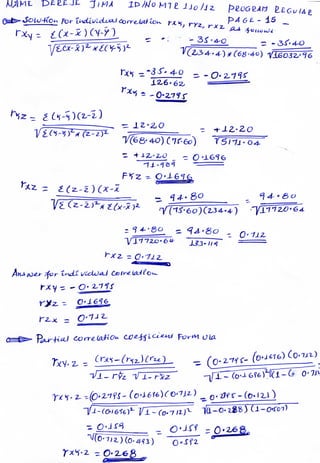 NAME DEREJE JIMA ID/NO MIR 110/12 PROGRAM REGULAR
PAGE - 15
Solution for individual correlation rxy, ryz, rxz as follows
rxy = Σ(x-x̄)(y-ȳ) / √Σ(x-x̄)² × Σ(y-ȳ)² = -35.40 / √(234.4)×(68.40) = -35.40 / √16032.96
rxy = -35.40 / 126.62 = -0.2795
rxy = -0.2795
ryz = Σ(y-ȳ)(z-z̄) / √Σ(y-ȳ)²×(z-z̄)² = 12.20 / √(68.40)(75.60) = +12.20 / √5171.04
= +12.20 / 71.909 = 0.1696
ryz = 0.1696
rxz = Σ(z-z̄)(x-x̄ / √Σ(z-z̄)²×Σ(x-x̄)² = 94.80 / √(75.60)(234.4) = 94.80 / √17720.64
= 94.80 / √17720.64 = 94.80 / 133.119 = 0.712
rxz = 0.712
Answer for individual correlation
rxy = -0.2795
ryz = 0.1696
rzx = 0.712
Partial correlation coefficient Formula
rxy.z = (rxy-(ryz)(rxz) / √1-r²yz √1-r²xz = (0.2795-(0.1696)(0.712)
rxy.z = (0.2795-(0.1696)(0.712) / √1-(0.1696)² √1-(0.712)²
= 0.159 / √(0.712)(0.493) = 0.159 / 0.592 = 0.268
rxy.z = 0.268